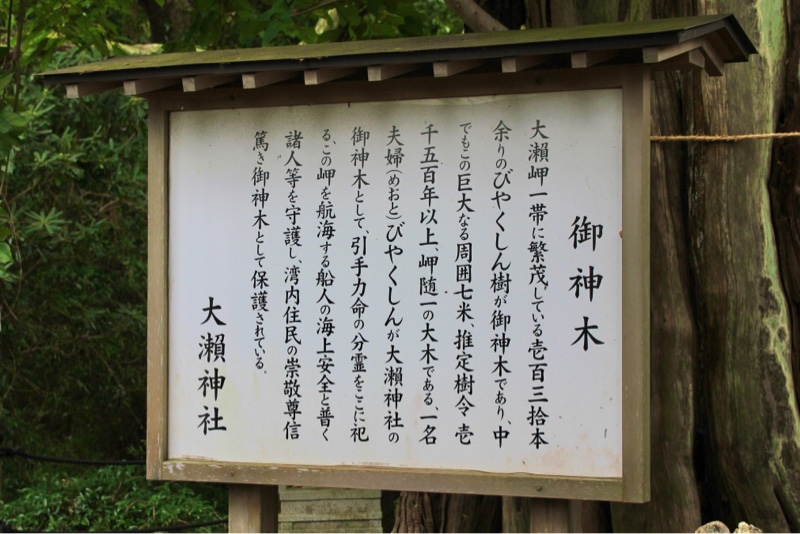 御神木
大瀬岬一帯に繁茂している壱百三拾本
余りのびやくしん樹が御神木であり、中
でもこの巨大なる周囲七米、推定樹令壱
千五百年以上、岬随一の大木である、一名
夫婦(めおと)びやくしんが大瀬神社の
御神木として、引手力命の分霊をここに祀
る、この岬を航海する船人の海上安全と普く
諸人等を守護し、湾内住民の崇敬尊信
篤き御神木として保護されている。
大瀬神社